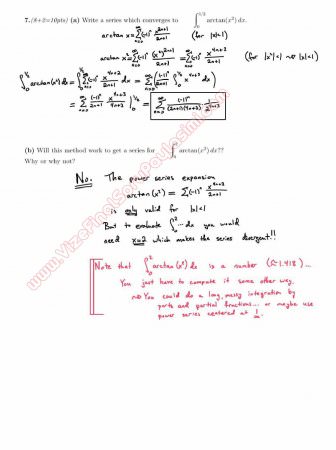 7. (8+2=10pts) (a) Write a series which converges to ∫₀^{1/2} arctan(x²) dx.
arctan x = Σ_{n=0}^∞ (-1)ⁿ x^{2n+1}/(2n+1) (for |x|<1)
arctan x² = Σ_{n=0}^∞ (-1)ⁿ (x²)^{2n+1}/(2n+1) = Σ_{n=0}^∞ (-1)ⁿ x^{4n+2}/(2n+1) (for |x²|<1 ⇒ |x|<1)
∫₀^{1/2} arctan(x²) dx = ∫₀^{1/2} Σ_{n=0}^∞ (-1)ⁿ x^{4n+2}/(2n+1) dx = Σ_{n=0}^∞ (-1)ⁿ/(2n+1) ∫₀^{1/2} x^{4n+2} dx
= Σ_{n=0}^∞ (-1)ⁿ/(2n+1) x^{4n+3}/(4n+3) |₀^{1/2} = Σ_{n=0}^∞ (-1)ⁿ/((2n+1)(4n+3)) · 1/2^{4n+3}
(b) Will this method work to get a series for ∫₀² arctan(x²) dx??
Why or why not?
No. The power series expansion
arctan(x²) = Σ(-1)ⁿ x^{4n+2}/(2n+1)
is only valid for |x|<1
But to evaluate ∫₀² ... dx you would
need x=2 which makes the series divergent!!
Note that ∫₀² arctan(x²) dx is a number (≈1.418)...
You just have to compute it some other way.
⇒ You could do a long, messy integration by
parts and partial fractions... or maybe use
power series centered at